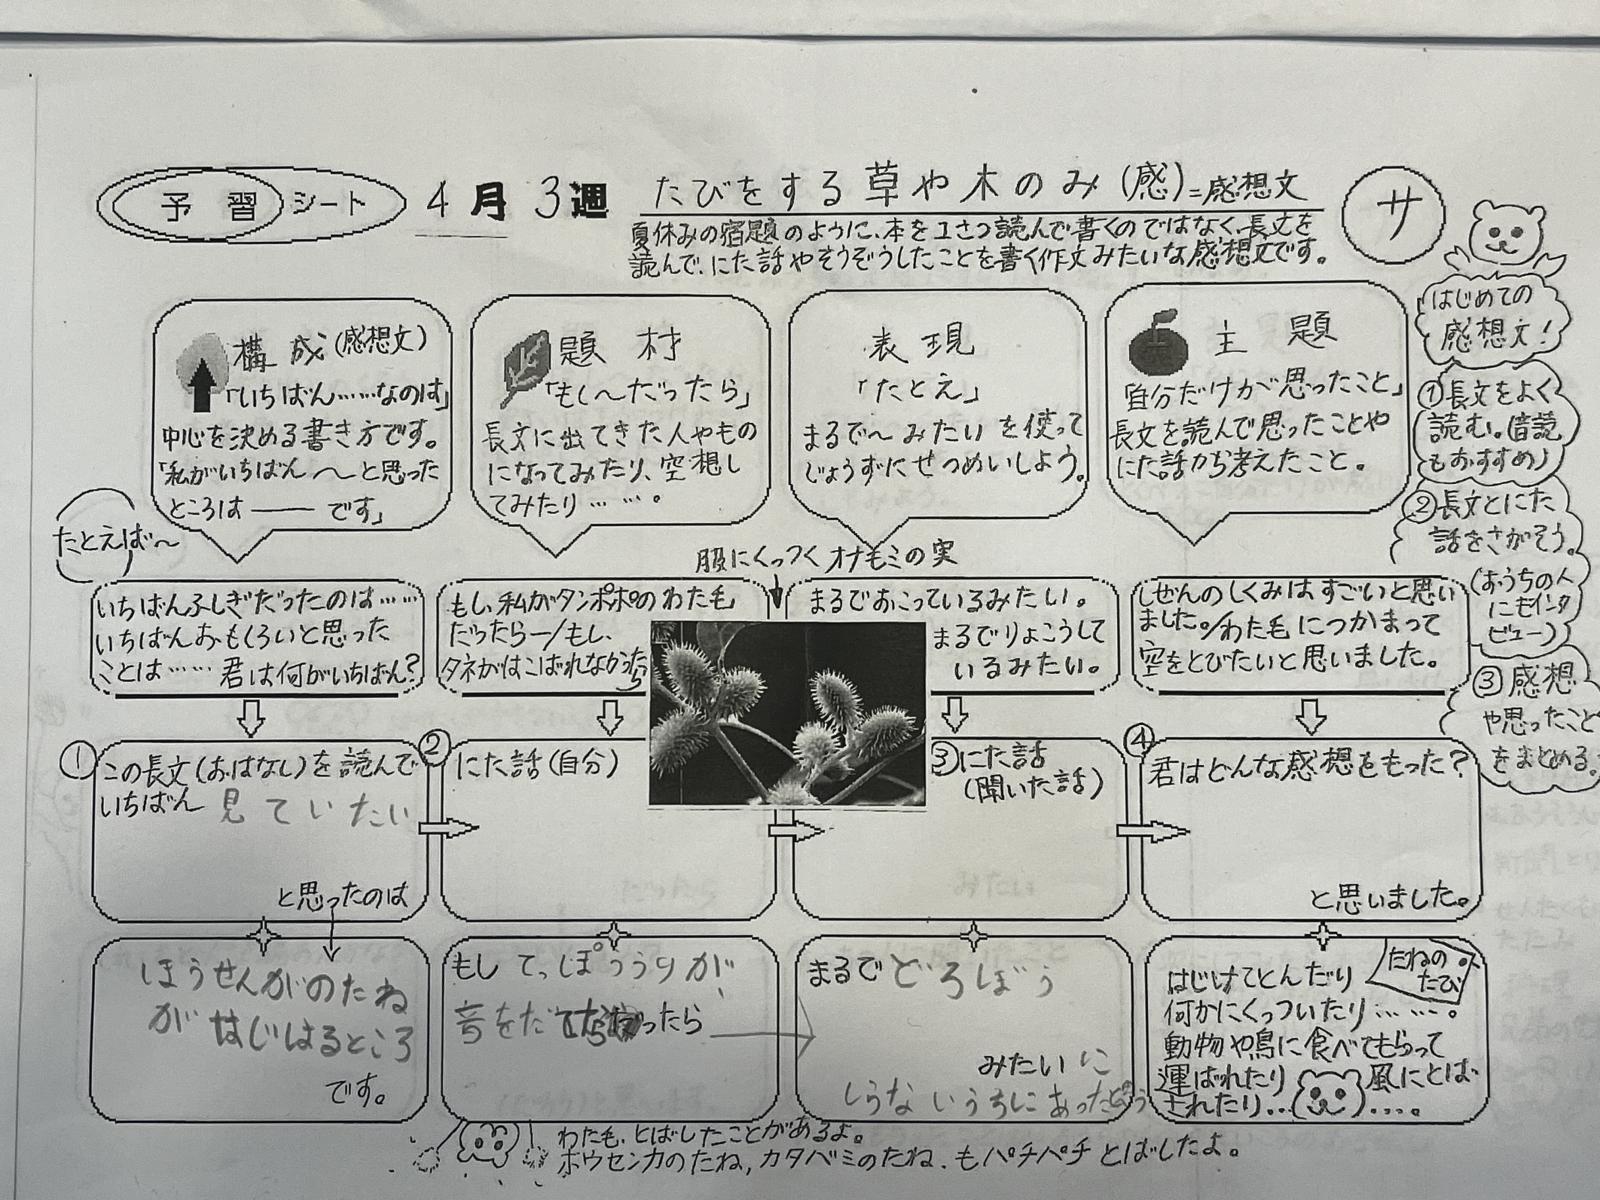 予習シート 4月3週 たびをする草や木のみ(感)=感想文 サ
夏休みの宿題のように、本を1さつ読んで書くのではなく、長文を
読んで、にた話やそうぞうしたことを書く作文みたいな感想文です。
構成(感想文)
「いちばん……なのは」
中心を決める書き方です。
「私がいちばん〜と思った
ところは―― です」
題材
「もし〜だったら」
長文に出てきた人やもの
になってみたり、空想し
てみたり……。
表現
「たとえ」
まるで〜みたい を使って
じょうずにせつめいしよう。
主題
「自分だけが思ったこと」
長文を読んで思ったことや
にた話から考えたこと。
はじめての
感想文!
①長文をよく
読む。(音読
もおすすめ)
②長文とにた
話をさがそう。
(おうちの人
にもインタ
ビュー)
③感想
や思ったこと
をまとめる。
たとえば〜
服にくっつく オナモミの実
いちばんふしぎだったのは……
いちばんおもしろいと思った
ことは…… 君は何がいちばん?
もし、私がタンポポのわた毛
だったら―/もし、
タネがはこばれなかったら
まるでおこっているみたい。
まるでりょこうして
いるみたい。
しぜんのしくみはすごいと思い
ました。/わた毛につかまって
空をとびたいと思いました。
①この長文(おはなし)を読んで
いちばん 見ていたい
と思ったのは
②にた話(自分)
③にた話
(聞いた話)
④君はどんな感想をもった?
と思いました。
ほうせんがのたね
がはじはるところ
です。
もし てっぽううりが、
音をだ
ったら
まるで どろぼう
みたいに
しらないうちにあった
たねの
たび
はじけてとんだり
何かにくっついたり……。
動物や鳥に食べてもらって
運ばれたり 風にとば
されたり…。
わた毛、とばしたことがあるよ。
ホウセンカのたね、カタバミのたね、もパチパチとばしたよ。